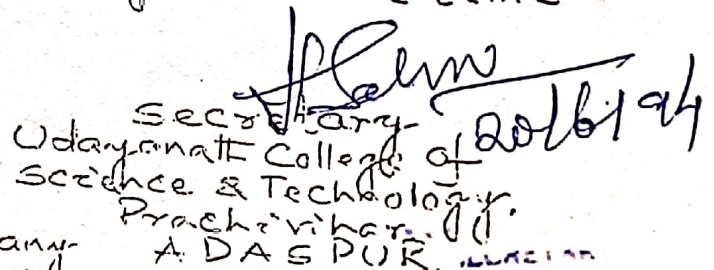 20/6/94
Secretary
Udayanath College of
Science & Technology.
Prachivihar.
ADASPUR